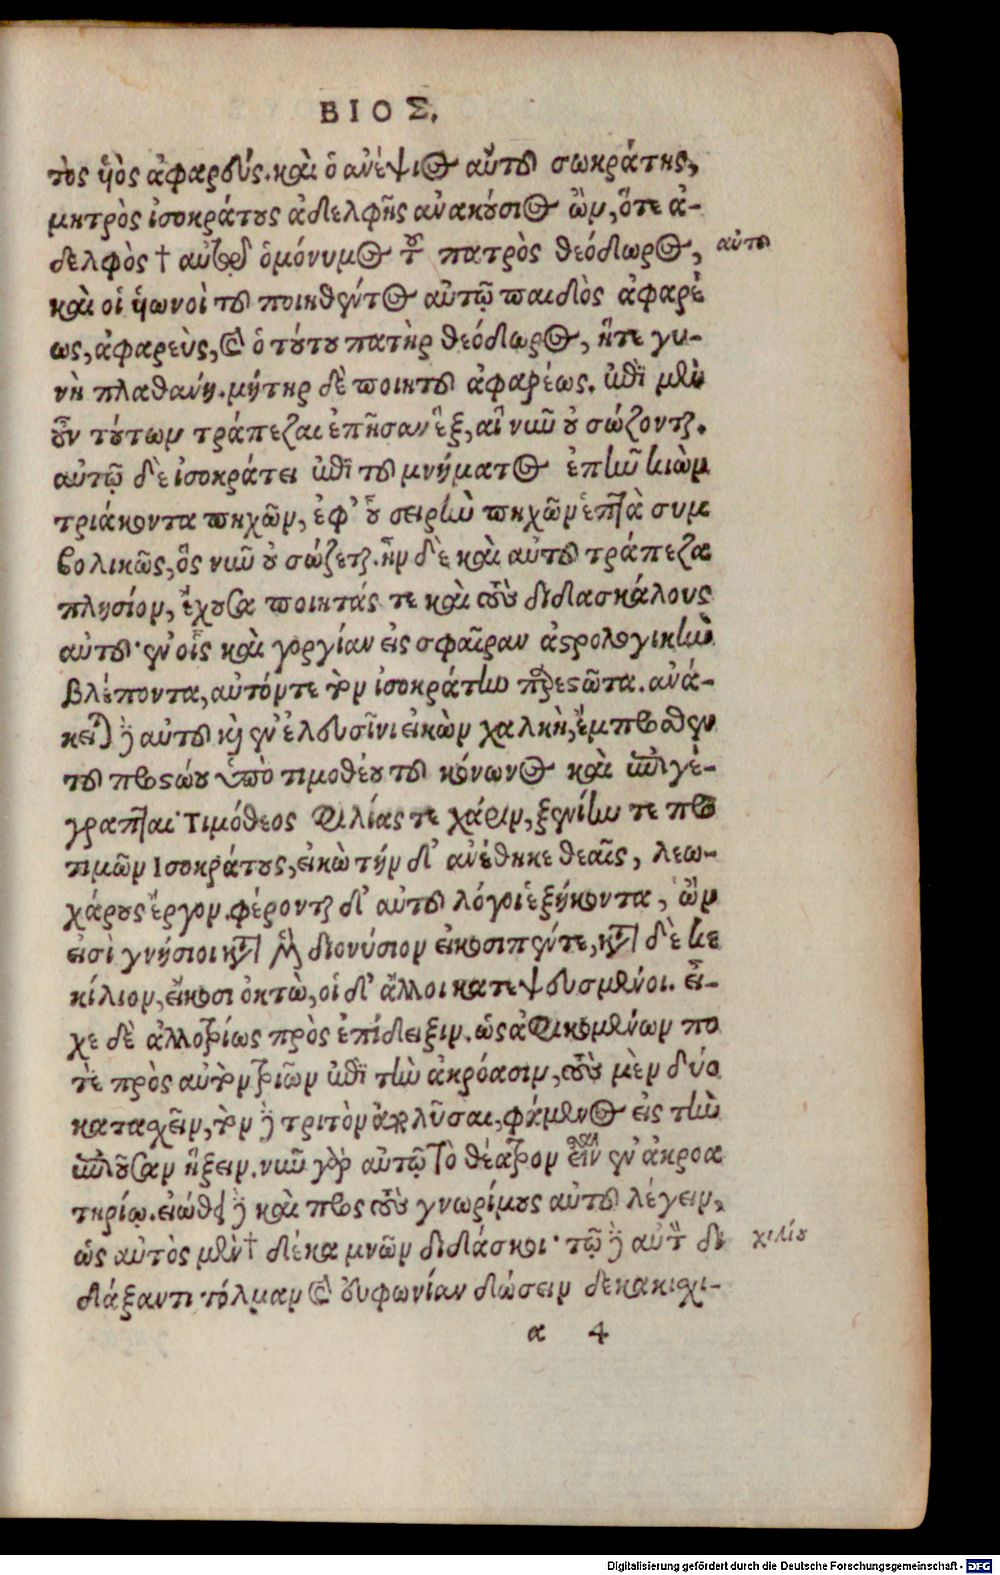 ΒΙΟΣ.
τὸς ὑὸς ἀφαρεύς. καὶ ὁ ἀνέψιος αὐτοῦ σωκράτης,
μητρὸς ἰσοκράτους ἀδελφῆς ἀνακούσιος ὢν, ὅτε ἀ-
δελφὸς † αὐτοῦ ὁμόνυμος τοῦ πατρὸς θεόδωρος,
αὐτοῦ
καὶ οἱ ὑωνοὶ τοῦ ποιηθέντος αὐτῷ παιδὸς ἀφαρέ
ως, ἀφαρεὺς, καὶ ὁ τούτου πατὴρ θεόδωρος, ἥτε γυ-
νὴ πλαθανή. μήτηρ δὲ ποιητοῦ ἀφαρέως. ἐπὶ μὲν
οὖν τούτων τράπεζαι ἐπῆσαν ἓξ, αἳ νῦν οὐ σώζονται.
αὐτῷ δὲ ἰσοκράτει ἐπὶ τοῦ μνήματος ἐπῆν κιὼν
τριάκοντα πηχῶν, ἐφ' οὗ σειρὴν πηχῶν ἑπτὰ συμ
βολικῶς, ὃς νῦν οὐ σώζεται. ἦν δὲ καὶ αὐτοῦ τράπεζα
πλησίον, ἔχουσα ποιητάς τε καὶ τοὺς διδασκάλους
αὐτοῦ· ἐν οἷς καὶ γοργίαν εἰς σφαῖραν ἀστρολογικὴν
βλέποντα, αὐτόντε τὸν ἰσοκράτην παρεστῶτα. ἀνά-
κειται δὲ αὐτοῦ καὶ ἐν ἐλευσῖνι εἰκὼν χαλκὴ, ἔμπροσθεν
τοῦ προστώου ὑπὸ τιμοθέου τοῦ κόνωνος καὶ ἐπιγέ-
γραπται· Τιμόθεος φιλίας τε χάριν, ξενίην τε προ
τιμῶν Ἰσοκράτους, εἰκὼ τήν δ' ἀνέθηκε θεαῖς, λεω-
χάρους ἔργον. φέρονται δ' αὐτοῦ λόγοι ἑξήκοντα, ὧν
εἰσὶ γνήσιοι κατὰ μὲν διονύσιον εἰκοσιπέντε, κατὰ δὲ κε
κίλιον, εἴκοσι ὀκτὼ, οἱ δ' ἄλλοι κατεψευσμένοι. εἶ-
χε δὲ ἀλλοτρίως πρὸς ἐπίδειξιν. ὡς ἀφικομένων πο
τὲ πρὸς αὐτὸν τριῶν ἐπὶ τὴν ἀκρόασιν, τοὺς μὲν δύο
κατασχεῖν, τὸν δὲ τρίτον ἀπολῦσαι, φάμενος εἰς τὴν
ἐπιοῦσαν ἥξειν. νῦν γὰρ αὐτῷ τὸ θέατρον εἶναι ἐν ἀκροα
τηρίῳ. εἰώθει δὲ καὶ πρὸς τοὺς γνωρίμους αὐτοῦ λέγειν,
ὡς αὐτὸς μὲν † δέκα μνῶν διδάσκοι· τῷ δὲ αὐτὸν δι
χιλίου
δάξαντι τόλμαν καὶ εὐφωνίαν δώσειν δεκακισχι-
α 4
Digitalisierung gefördert durch die Deutsche Forschungsgemeinschaft - DFG